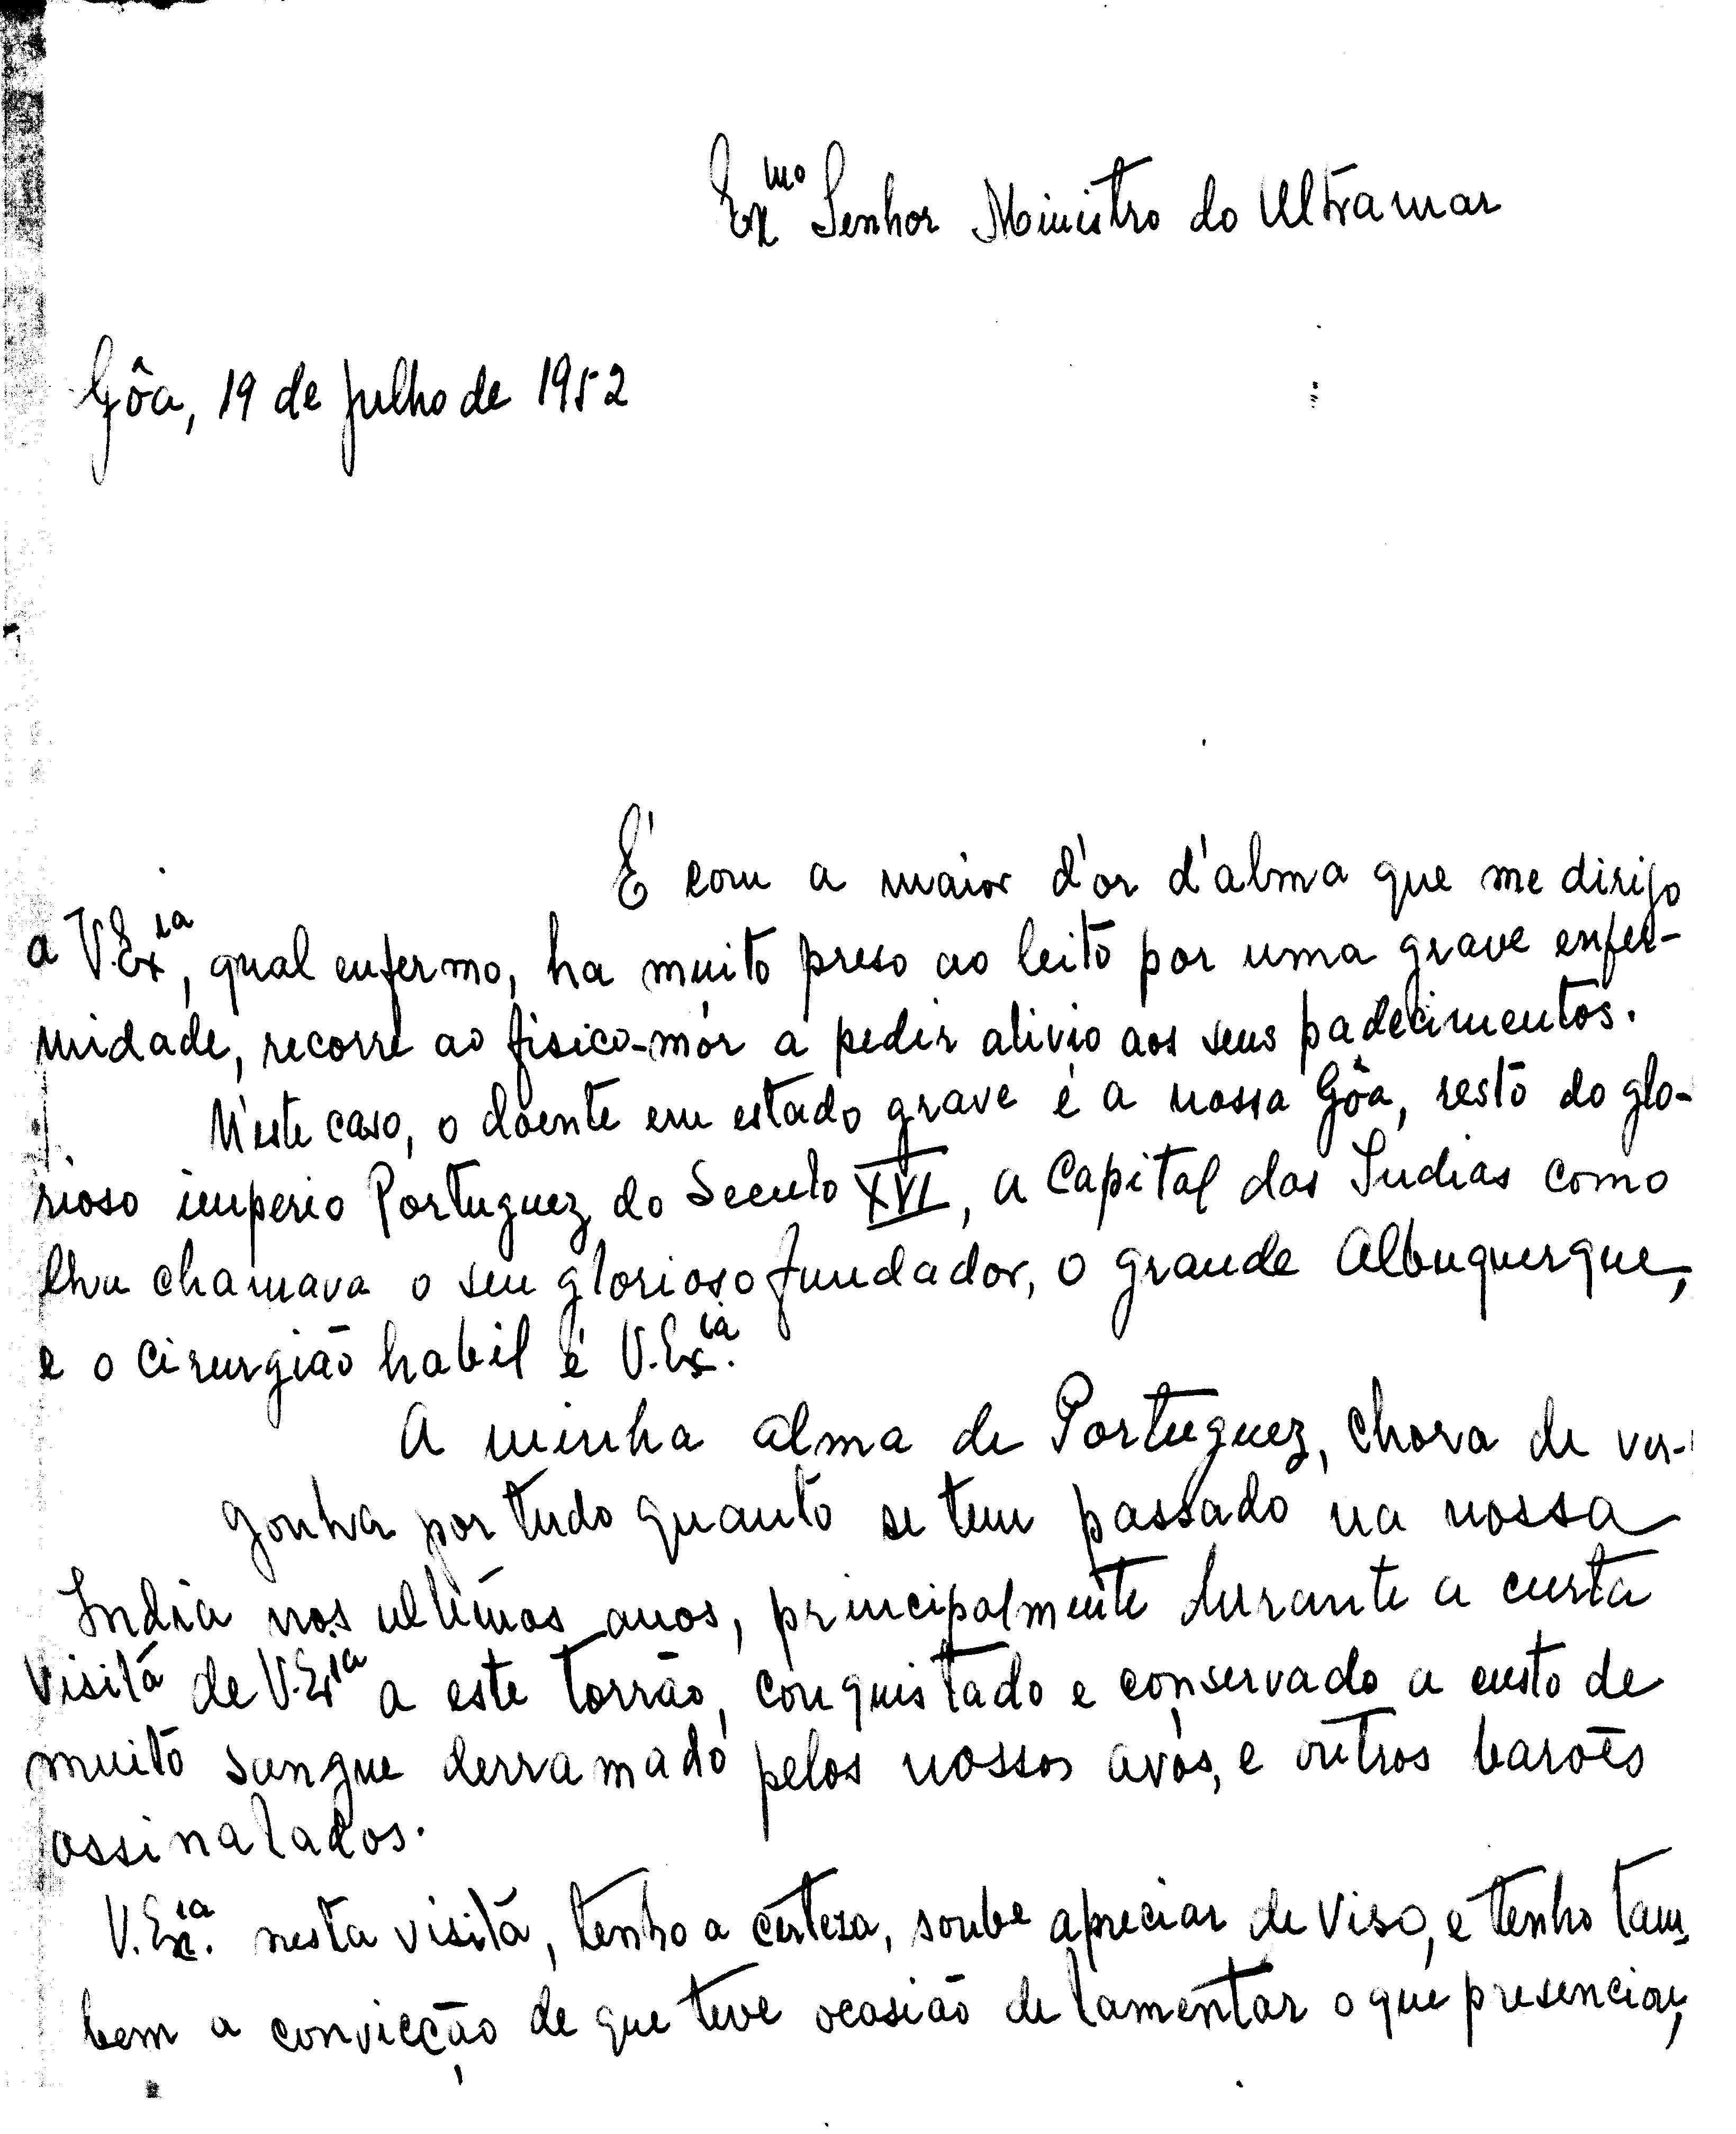 Exmo Senhor Ministro do Ultramar
Gôa, 19 de Julho de 1952
É com a maior d'or d'alma que me dirijo
a V. Exia, qual enfermo, ha muito preso ao leito por uma grave enfer-
midade, recorre ao fisico-mór a pedir alivio aos seus padecimentos.
N'este caso, o doente em estado grave é a nossa Gôa, resto do glo-
rioso imperio Portuguez do Seculo XVI, a Capital das Indias como
lhe chamava o seu glorioso fundador, o grande Albuquerque,
e o cirurgião habil é V. Exia.
A minha alma de Portuguez, chora de ver-
gonha por tudo quanto se tem passado na nossa
India nos ultimos anos, principalmente durante a curta
visita de V. Exia a este torrão, conquistado e conservado a custo de
muito sangue derramado pelos nossos avós, e outros barões
assinalados.
V. Exia. nesta visita, tenho a certeza, soube apreciar de viso, e tenho tam-
bem a convicção de que teve ocasião de lamentar o que presenciou,